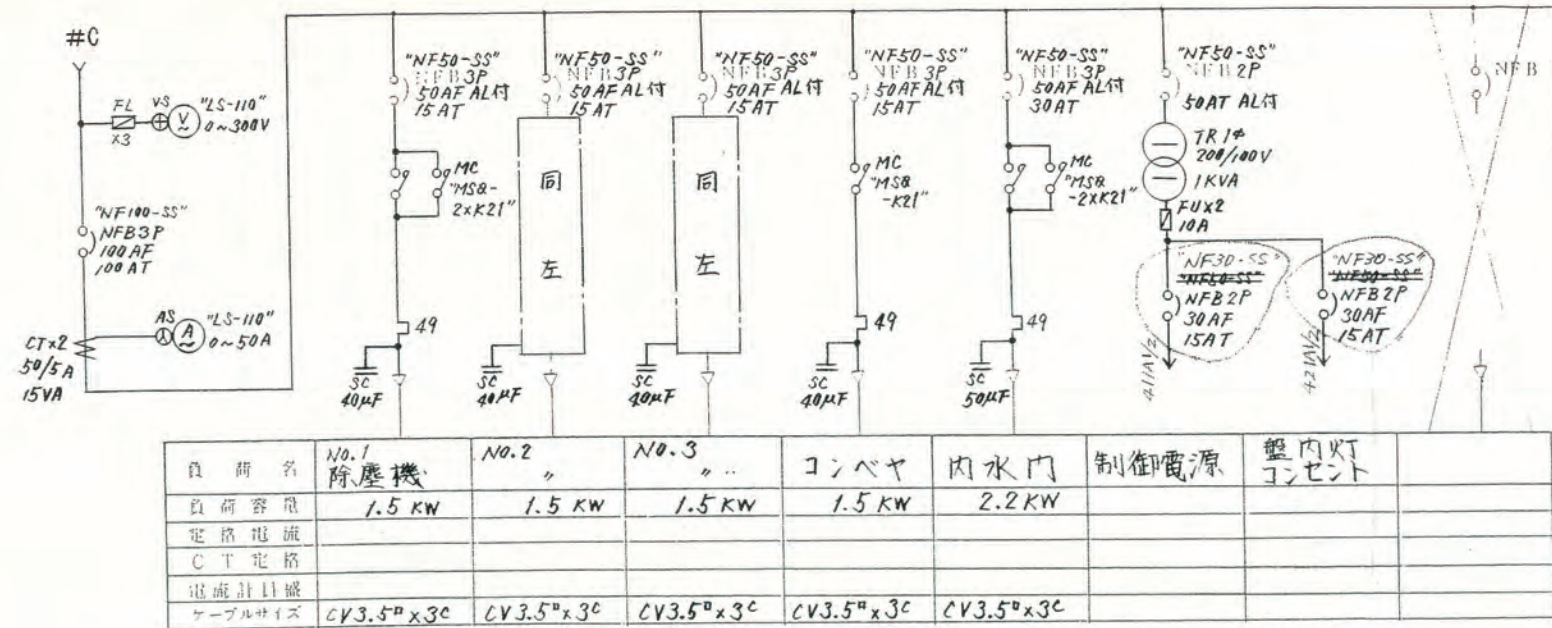 #C
FL
×3
VS
V
"LS-110"
0~300V
"NF100-SS"
NFB3P
100AF
100AT
CT×2
50/5A
15VA
AS
A
"LS-110"
0~50A
"NF50-SS"
NFB3P
50AF AL付
15AT
MC
"MSQ-
2×K21"
49
SC
40μF
"NF50-SS"
NFB3P
50AF AL付
15AT
同
左
SC
40μF
"NF50-SS"
NFB3P
50AF AL付
15AT
同
左
SC
40μF
"NF50-SS"
NFB3P
50AF AL付
15AT
MC
"MSQ
-K21"
49
SC
40μF
"NF50-SS"
NFB3P
50AF AL付
30AT
MC
"MSQ
-2×K21"
49
SC
50μF
"NF50-SS"
NFB2P
50AT AL付
TR1φ
200/100V
1KVA
FU×2
10A
"NF30-SS"
"NF50-SS"
NFB2P
30AF
15AT
411AV/2
"NF30-SS"
"NF50-SS"
NFB2P
30AF
15AT
421AV/2
NFB
負荷名 No.1 No.2 No.3 コンベヤ 内水門 制御電源 盤内灯
除塵機 〃 〃 コンセント
負荷容量 1.5KW 1.5KW 1.5KW 1.5KW 2.2KW
定格電流
CT定格
電流計目盛
ケーブルサイズ CV3.5□×3C CV3.5□×3C CV3.5□×3C CV3.5□×3C CV3.5□×3C